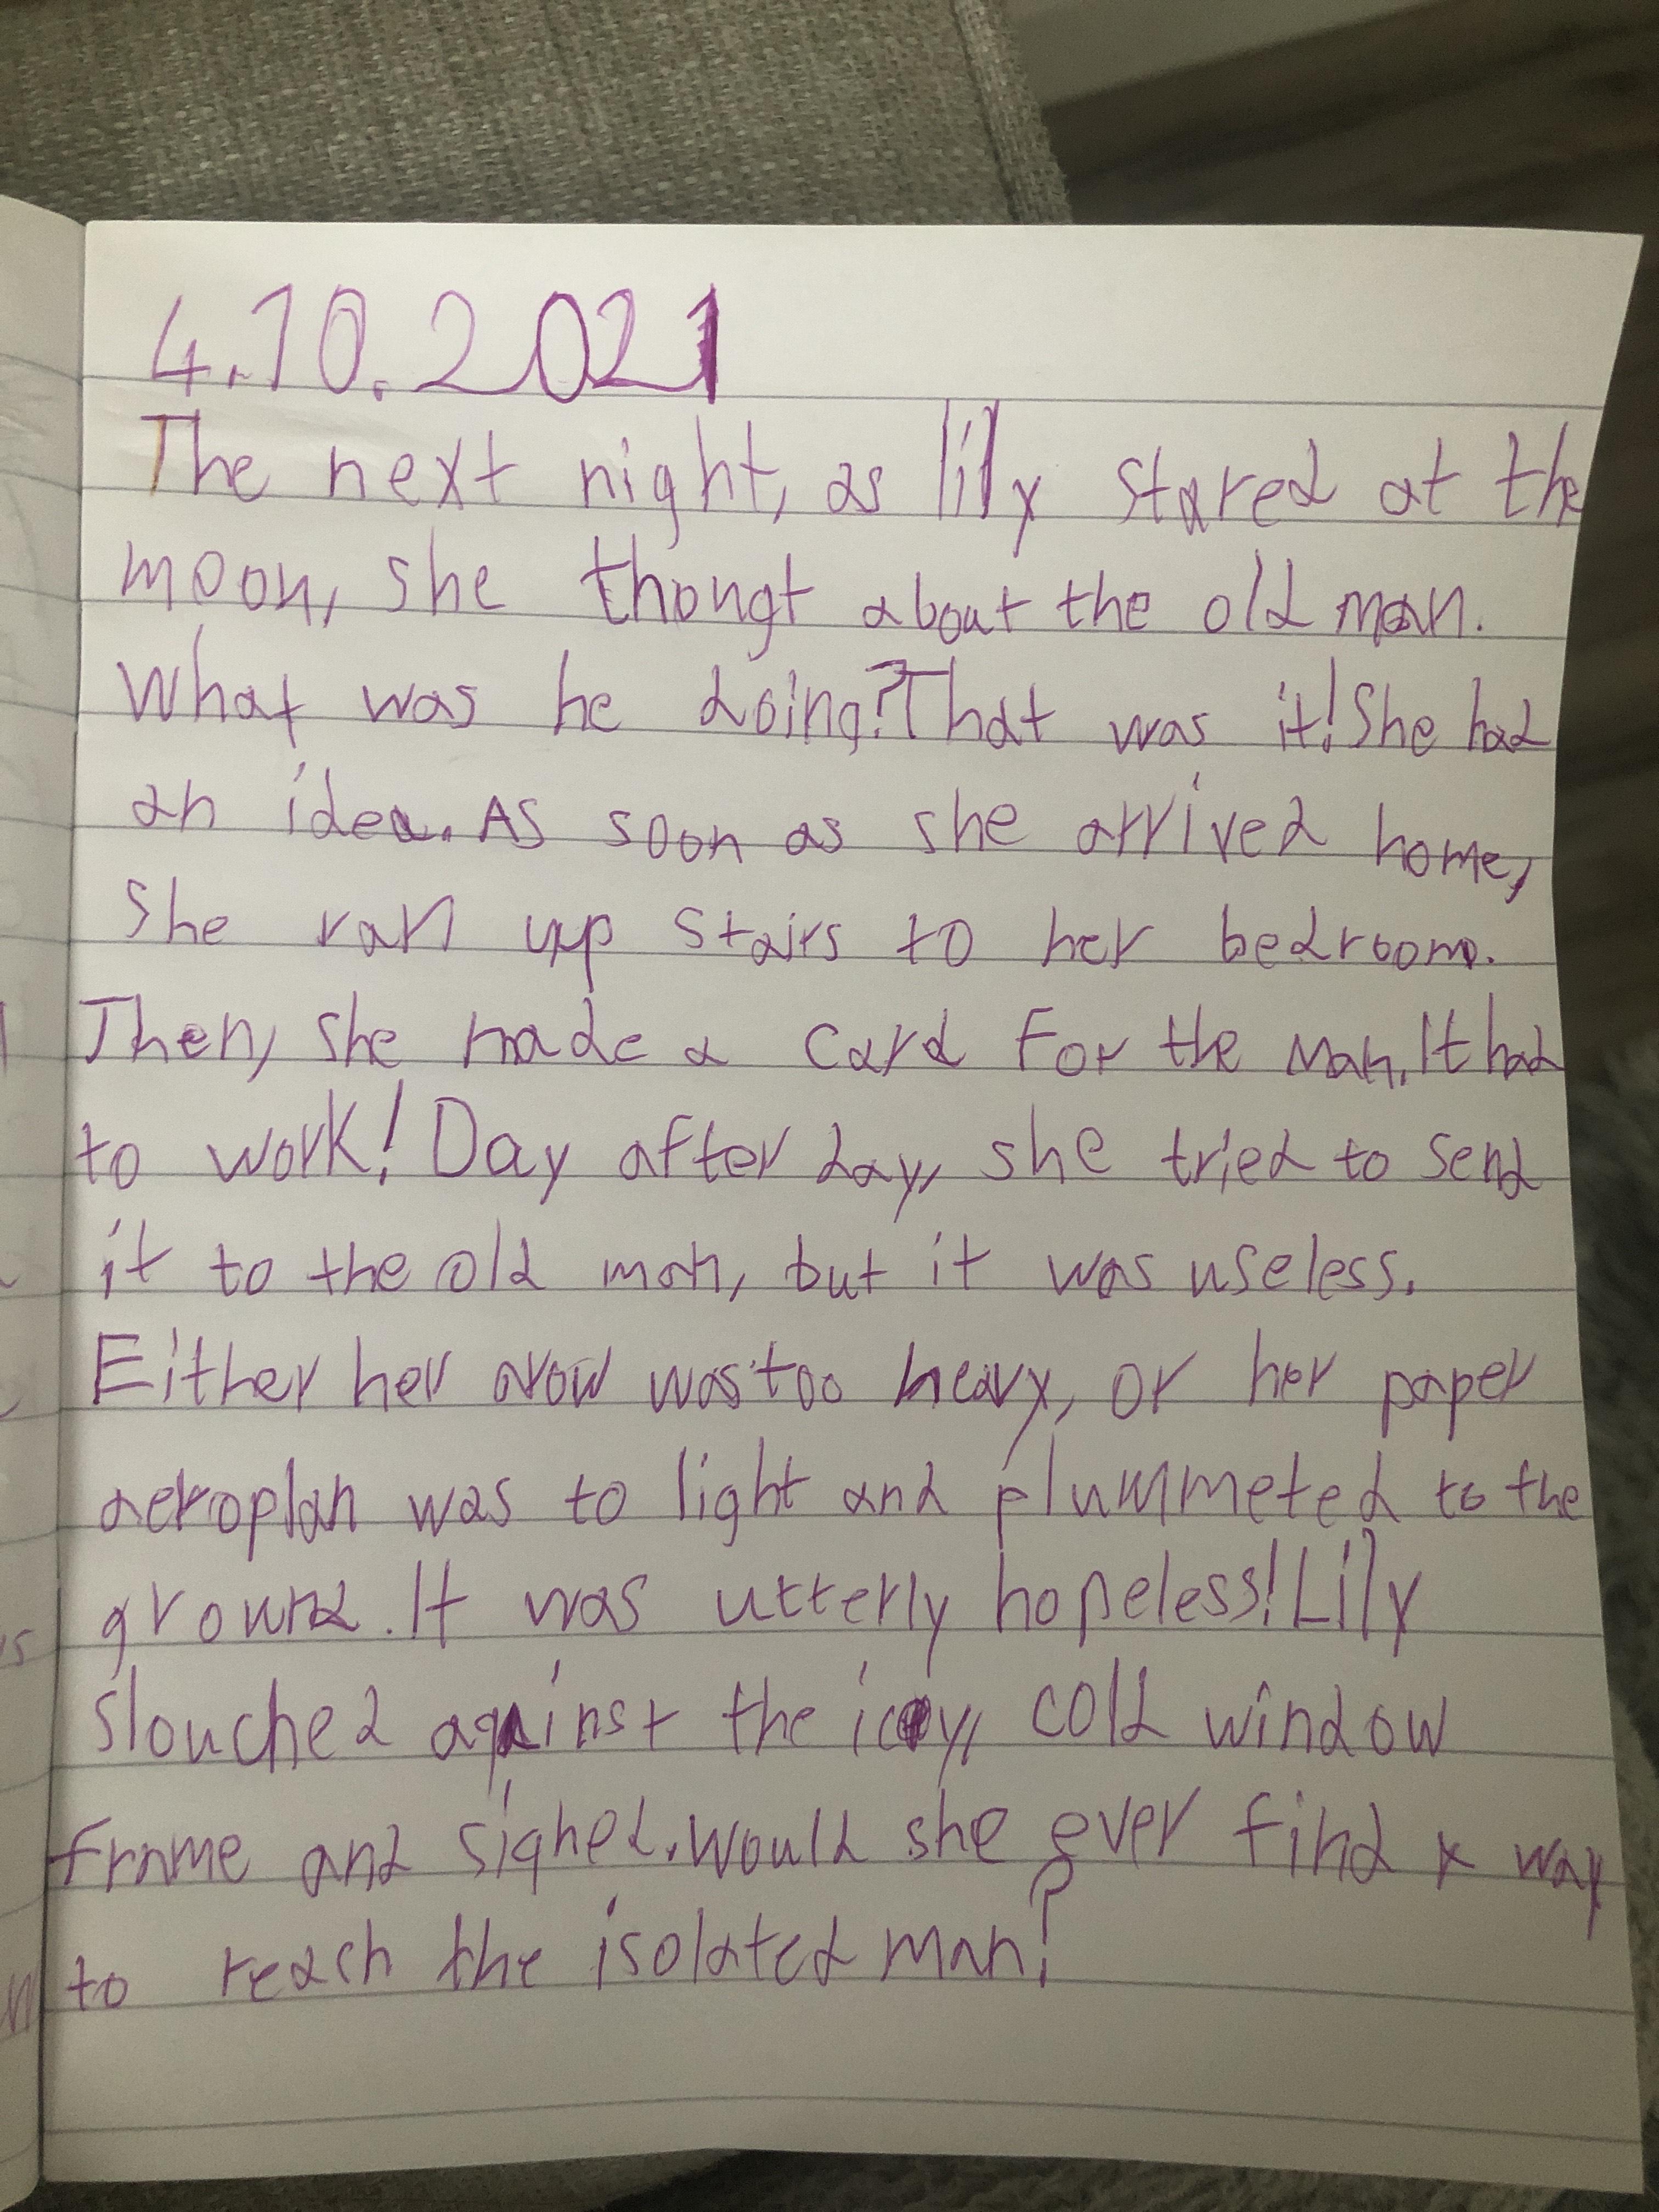 4.10.2021
The next night, as lily stared at the
moon, she thougt about the old man.
What was he doing? That was it! She had
an idea. As soon as she arrived home,
she ran up stairs to her bedroom.
Then, she made a card for the man. It had
to work! Day after day, she tried to send
it to the old man, but it was useless.
Either her arow was too heavy, or her paper
aeroplan was to light and plummeted to the
ground. It was utterly hopeless! Lily
slouched against the icy, cold window
frame and sighed. Would she ever find a way
to reach the isolated man?